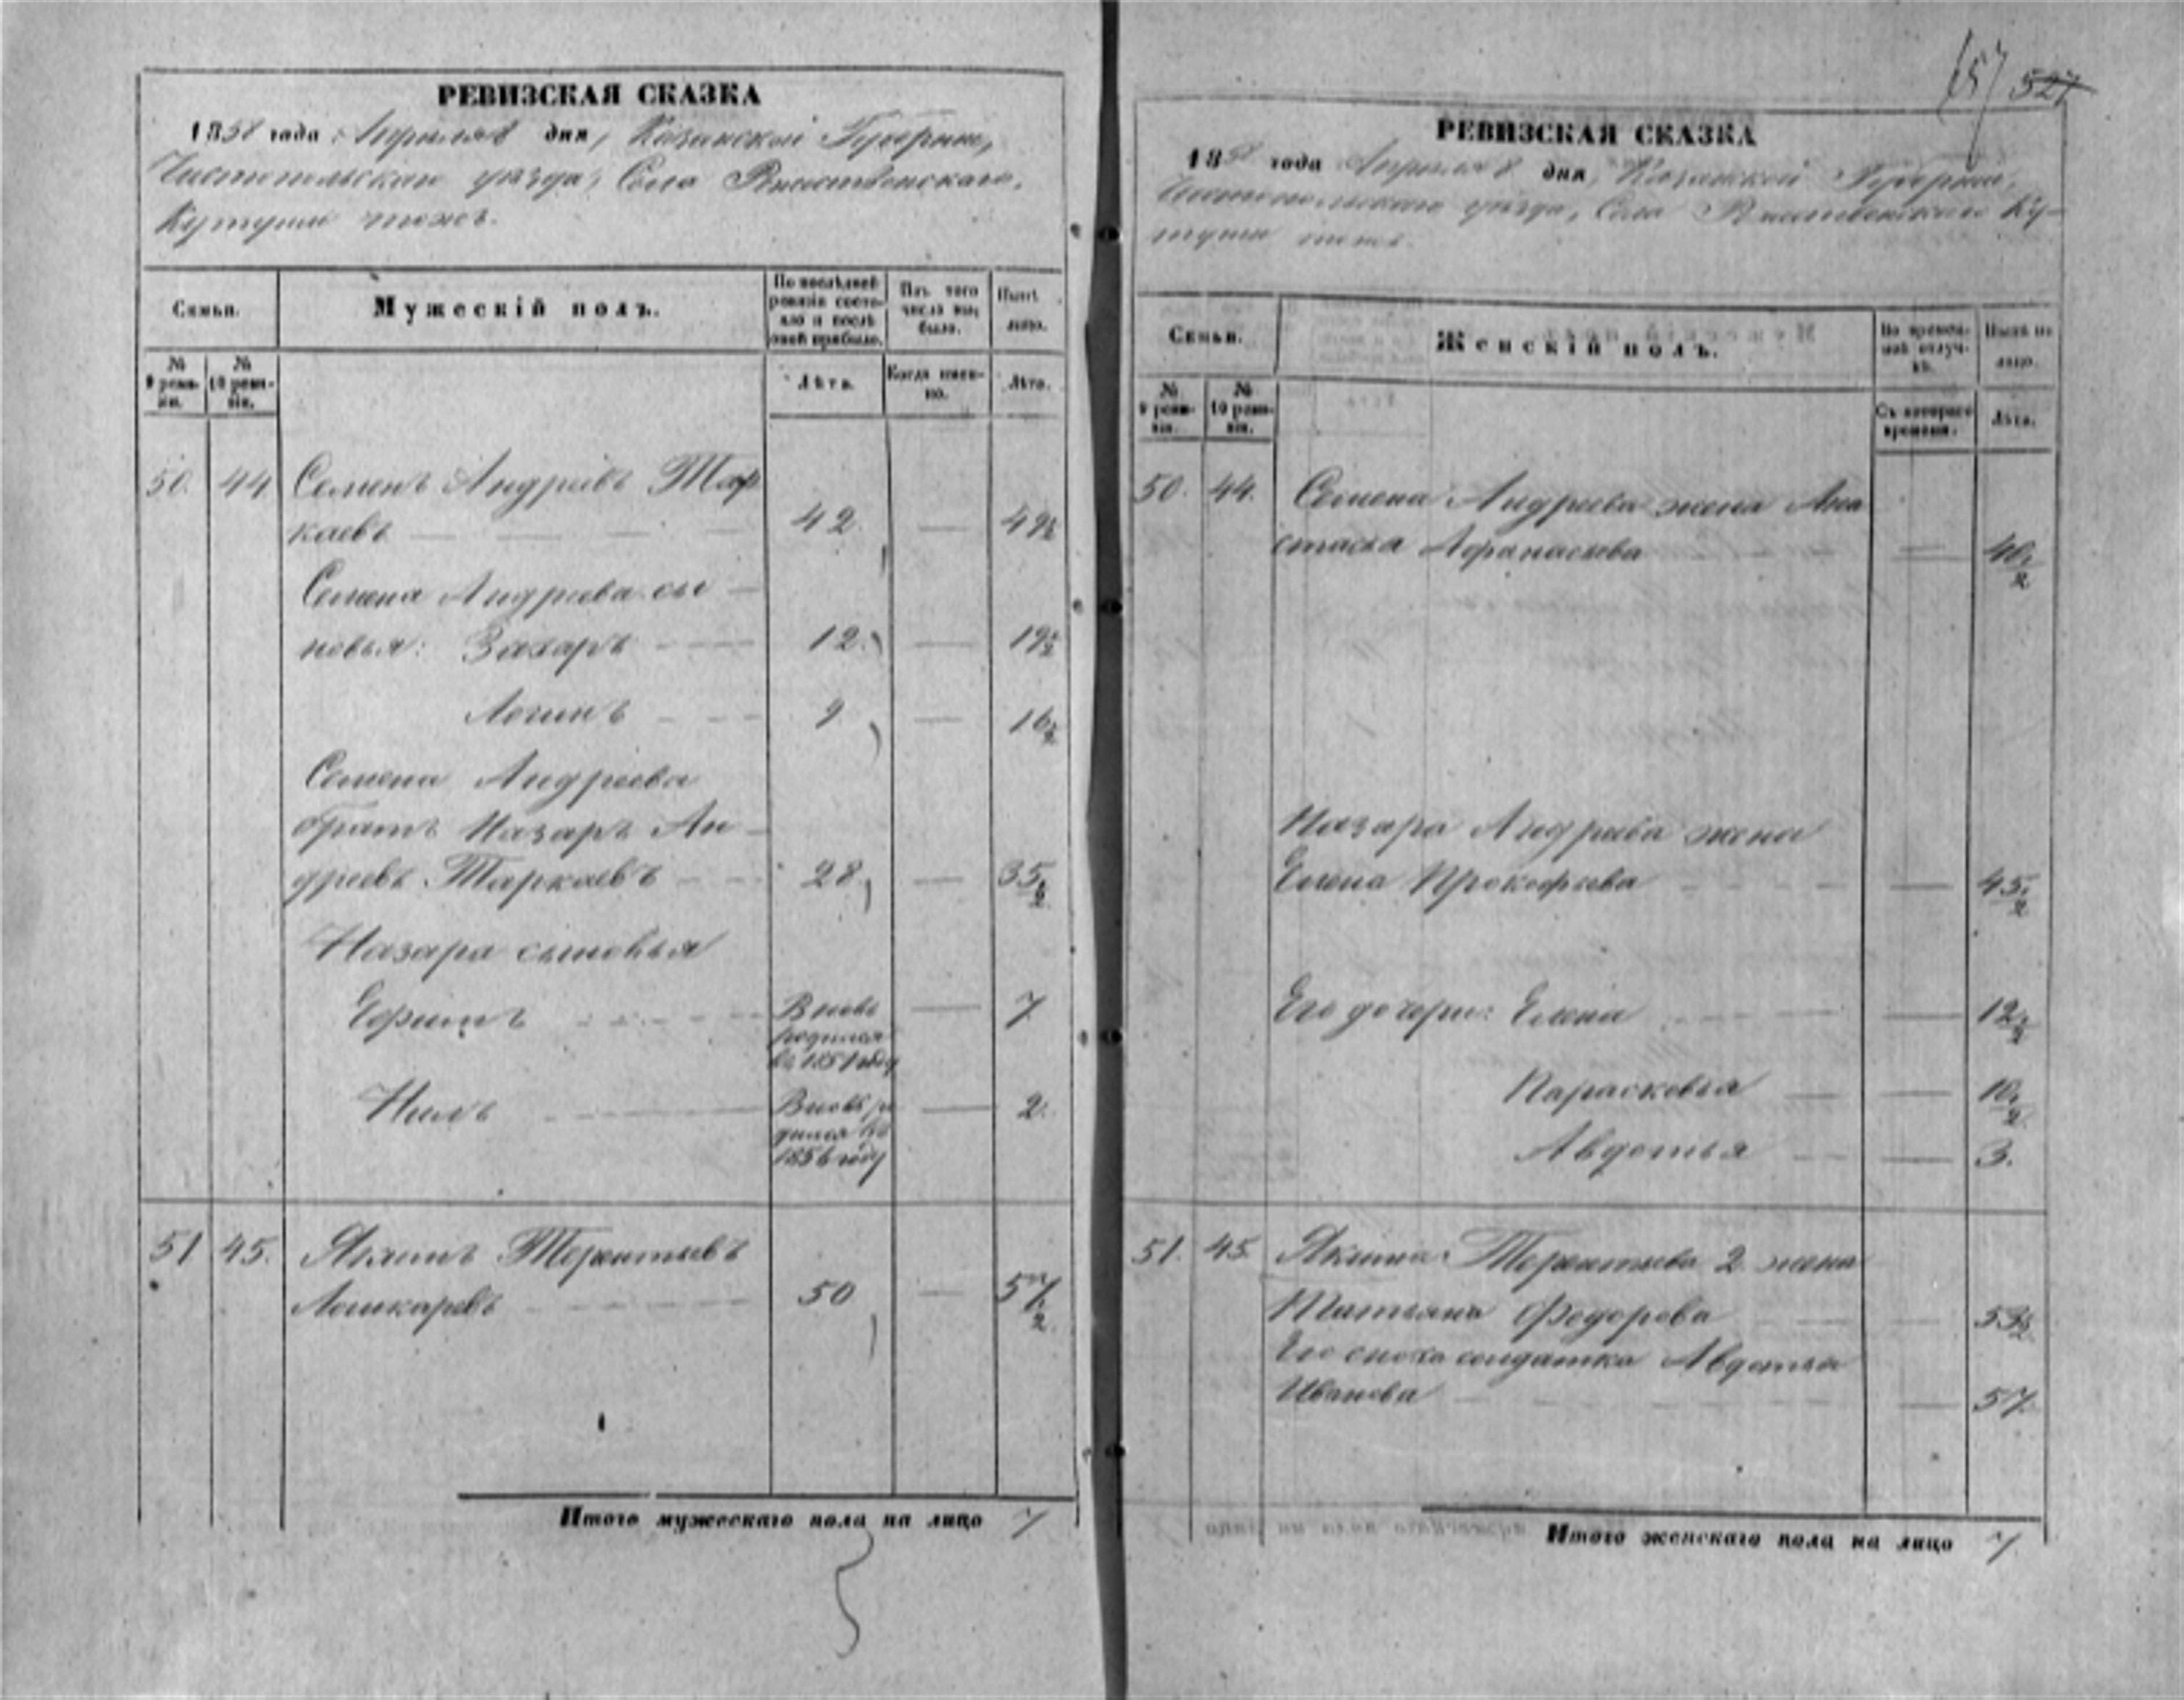 657 527
РЕВИЗСКАЯ СКАЗКА
1858 года Апреля 8 дня, Казанской Губернии,
Чистопольскаго уѣзда, Села Рожественскаго,
Кутуши тожъ.
Семьи.
Мужескій полъ.
По послѣдней ревизіи состояло и послѣ оной прибыло.
Изъ того числа выбыло.
Нынѣ на лицо.
№ 9 ревизіи.
№ 10 ревизіи.
Лѣта.
Когда именно.
Лѣта.
50. 44 Семенъ Андреевъ Тар
каевъ 42 — 49½
Семена Андреева сы-
новья: Захаръ 12 — 19½
Логинъ 9 — 16½
Семена Андреева
братъ Назаръ Ан-
дреевъ Таркаевъ 28 — 35½
Назара сыновья
Ефимъ Вновь родился въ 1851 году — 7
Нилъ Вновь родился въ 1856 году — 2.
51 45. Якимъ Терентьевъ
Лошкаревъ 50 — 57½
Итого мужескаго пола на лицо 7
РЕВИЗСКАЯ СКАЗКА
1858 года Апреля 8 дня, Казанской Губерніи,
Чистопольскаго уѣзда, Села Рожественскаго Ку-
туши тожъ.
Семьи.
Женскій полъ.
Во временной отлучкѣ.
Нынѣ на лицо.
№ 9 ревизіи.
№ 10 ревизіи.
Съ котораго времени.
Лѣта.
50. 44. Семена Андреева жена Ана
стасья Афанасьева — 40½
Назара Андреева жена
Елена Прокофьева — 45½
Его дочери: Елена — 12½
Парасковья — 10½
Авдотья — 3.
51. 45 Якима Терентьева 2 жена
Татьяна Федорова — 53½
Его сноха солдатка Авдотья
Иванова — 57.
Итого женскаго пола на лицо 7.